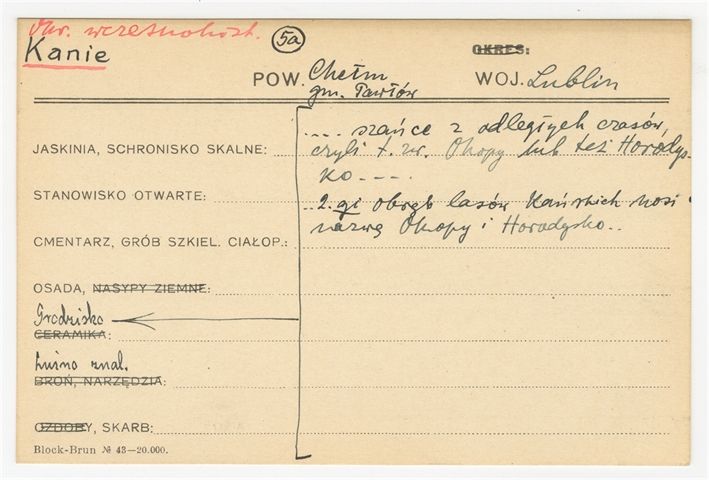 Okr. wczesnohist.
Kanie
5a
OKRES:
POW. Chełm
gm. Pawłów
WOJ. Lublin
.... szańce z odległych czasów,
JASKINIA, SCHRONISKO SKALNE: czyli t. zw. Okopy lub też Horodys-
ko ----.
STANOWISKO OTWARTE:
..2.gi obręb lasów Kańskich nosi
nazwę Okopy i Horodysko..
CMENTARZ, GRÓB SZKIEL. CIAŁOP.:
OSADA, NASYPY ZIEMNE:
Grodzisko
CERAMIKA:
Luźno znal.
BROŃ, NARZĘDZIA:
OZDOBY, SKARB:
Block-Brun № 43—20.000.